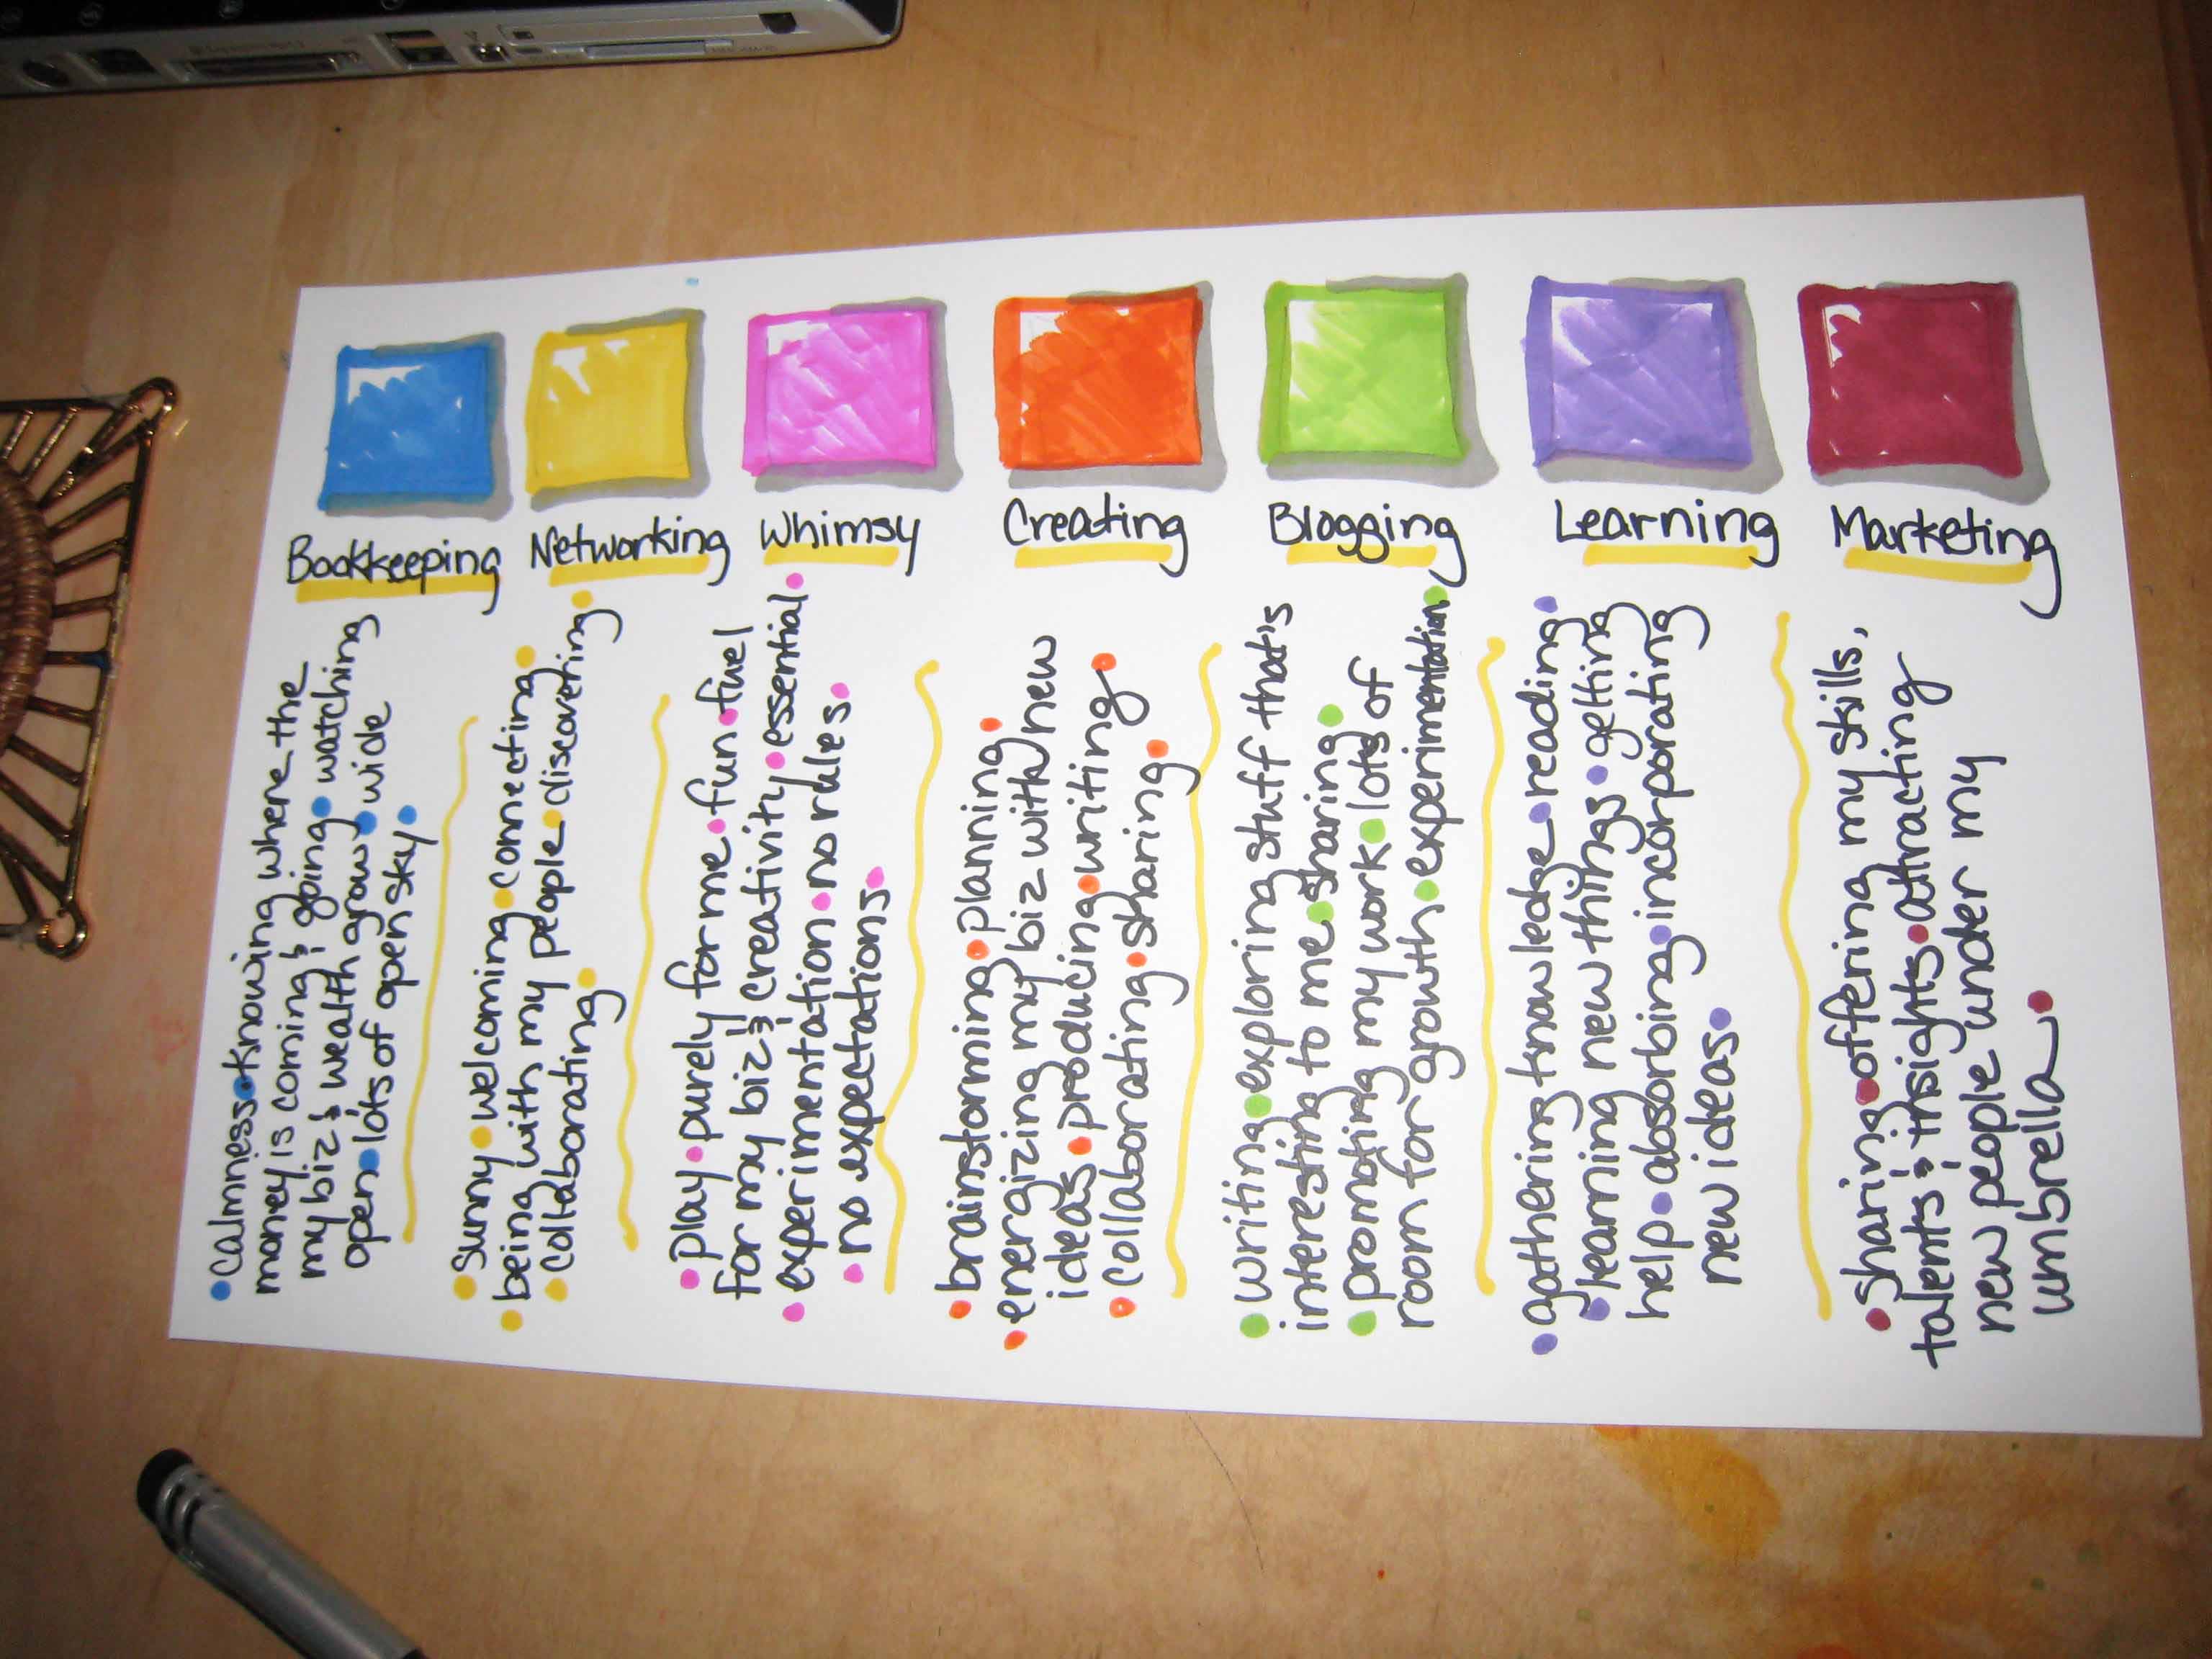 Bookkeeping
• calmness • knowing where the
money is coming & going • watching
my biz & wealth grow • wide
open • lots of open sky •
Networking
• sunny • welcoming • connecting •
• being with my people • discovering •
• collaborating •
Whimsy
• play • purely for me • fun • fuel
for my biz & creativity • essential •
• experimentation • no rules •
• no expectations •
Creating
• brainstorming • planning •
• energizing my biz with new
ideas • producing • writing •
• collaborating • sharing •
Blogging
• writing • exploring stuff that's
interesting to me • sharing •
• promoting my work • lots of
room for growth • experimentation •
Learning
• gathering knowledge • reading •
• learning new things • getting
help • absorbing • incorporating
new ideas •
Marketing
• sharing • offering my skills,
talents & insights • attracting
new people under my
umbrella •